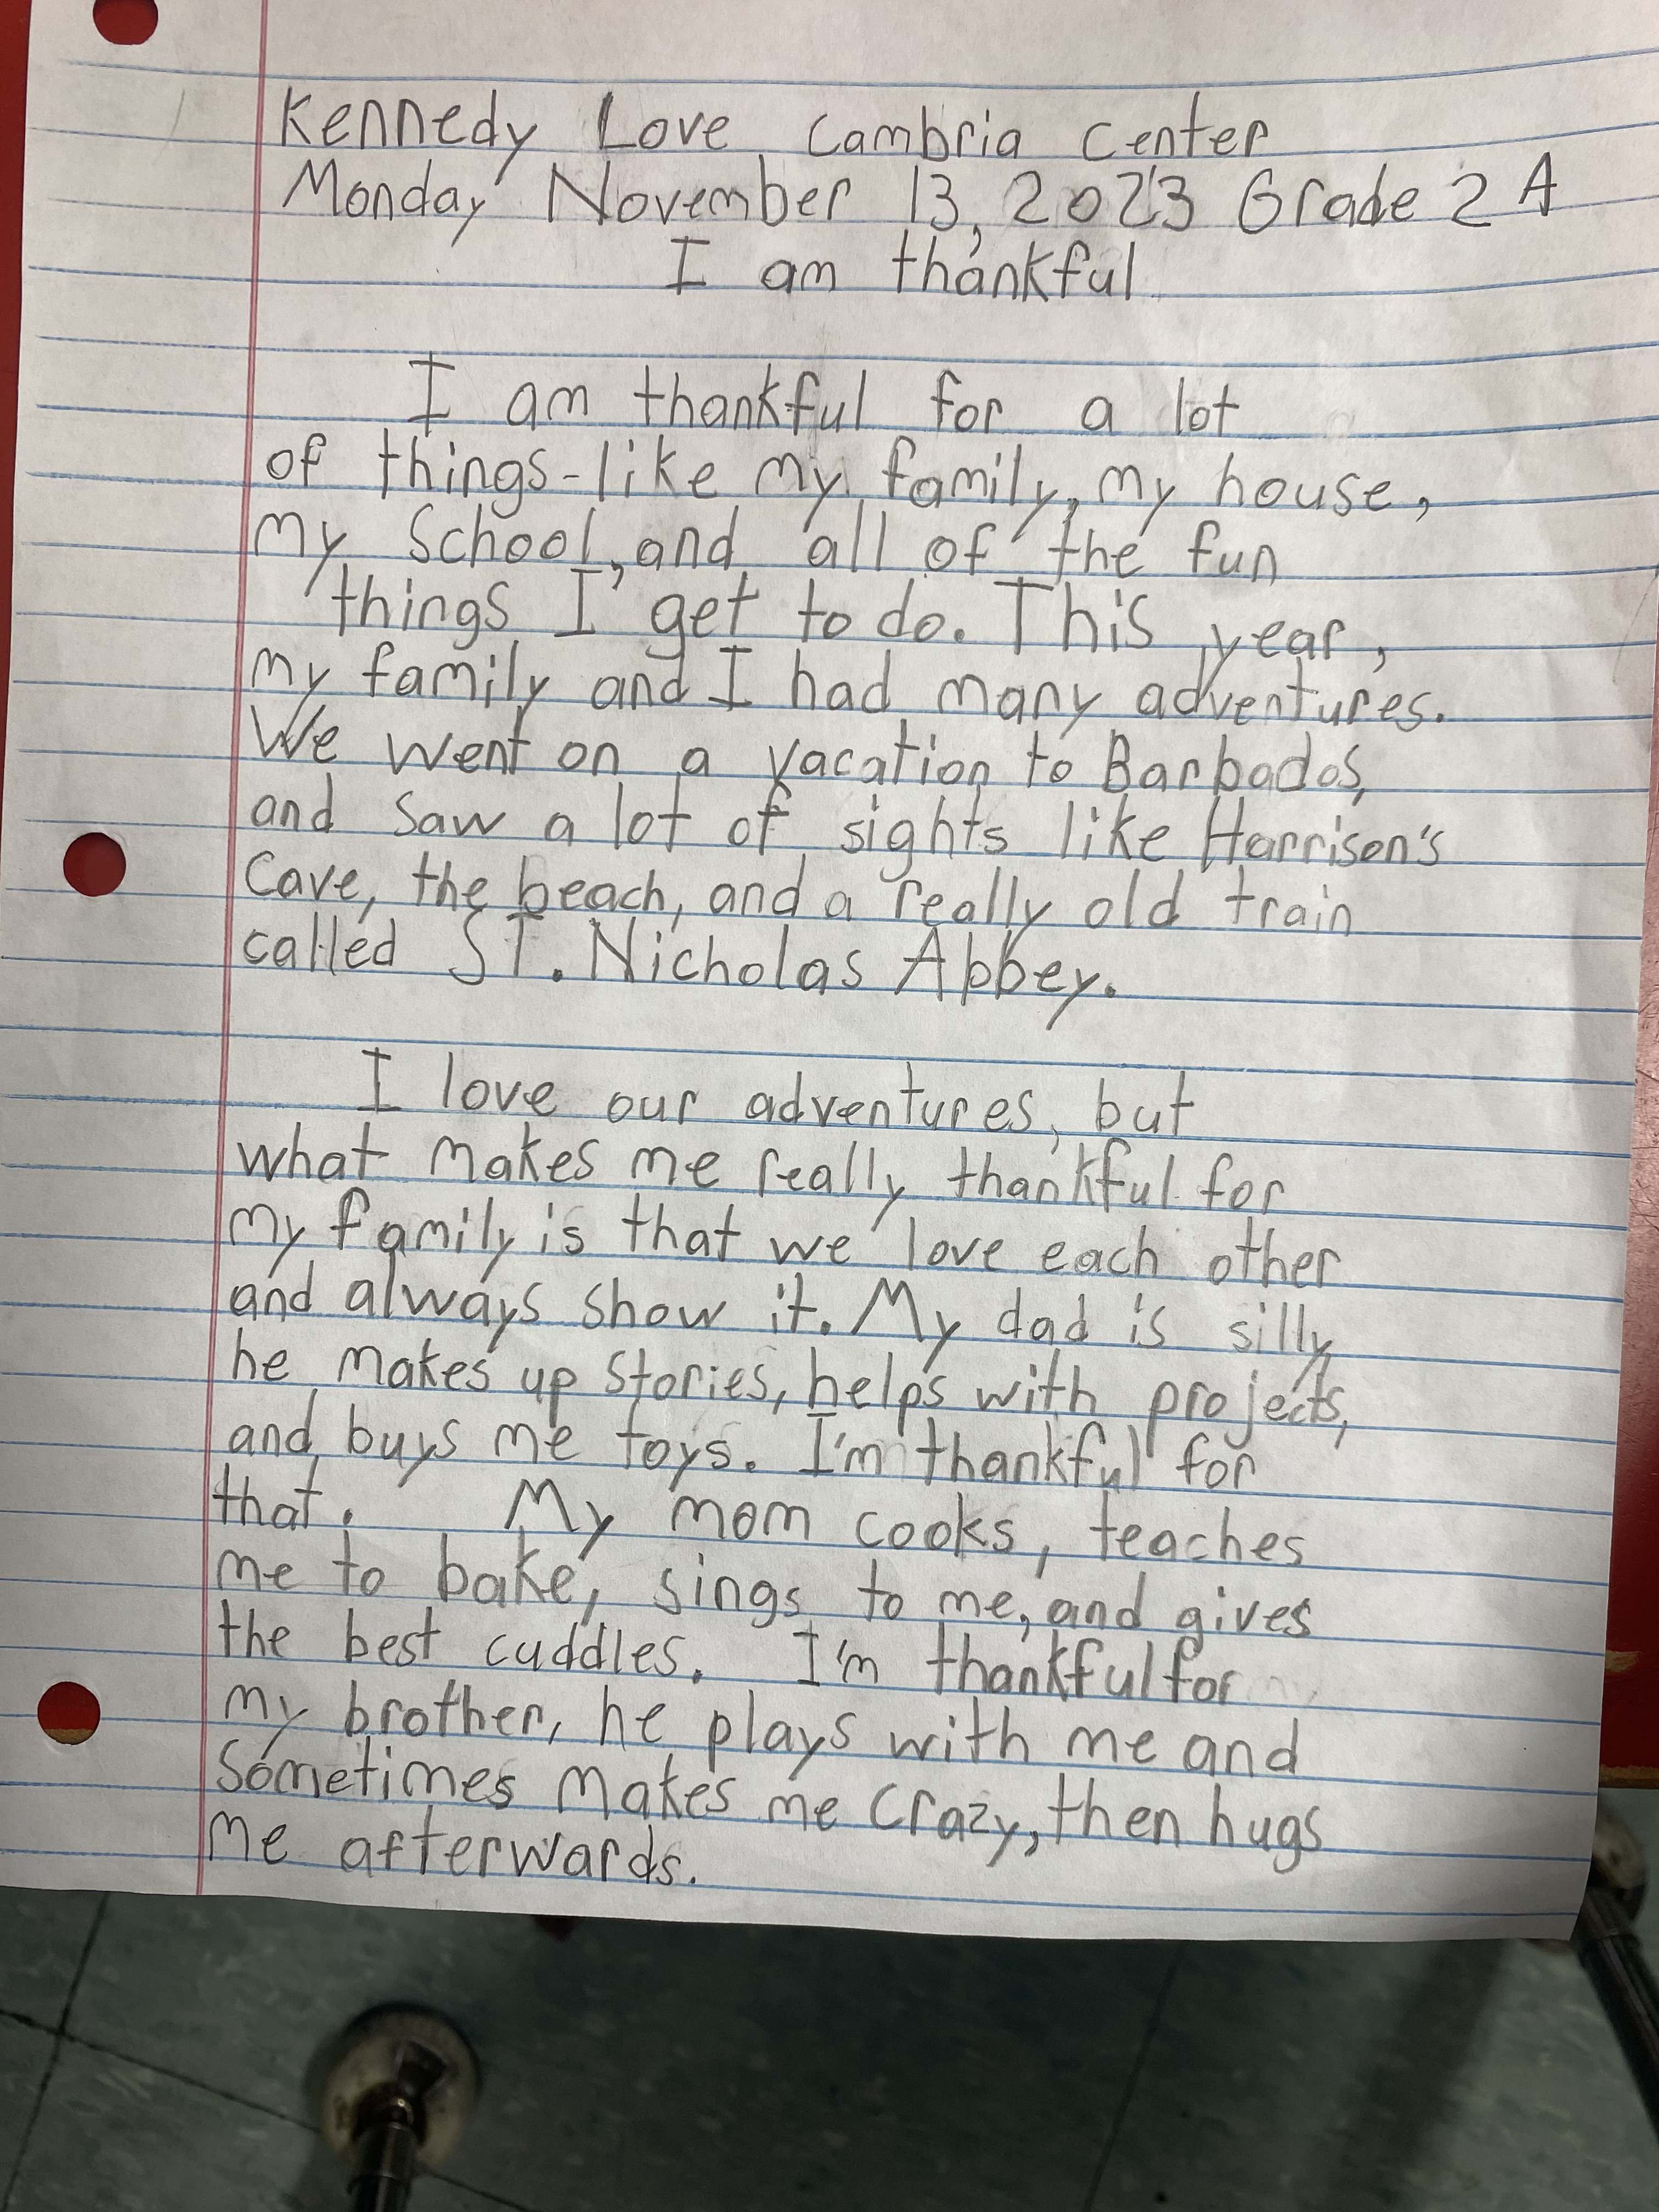 Kennedy Love Cambria Center
Monday November 13, 2023 Grade 2 A
I am thankful
I am thankful for a lot
of things-like my family, my house,
my school, and all of the fun
things I get to do. This year,
my family and I had many adventures.
We went on a vacation to Barbados,
and saw a lot of sights like Harrison's
Cave, the beach, and a really old train
called ST. Nicholas Abbey.
I love our adventures, but
what makes me really thankful for
my family is that we love each other
and always show it. My dad is silly,
he makes up stories, helps with projects,
and buys me toys. I'm thankful for
that. My mom cooks, teaches
me to bake, sings to me, and gives
the best cuddles. I'm thankful for
my brother, he plays with me and
sometimes makes me crazy, then hugs
me afterwards.